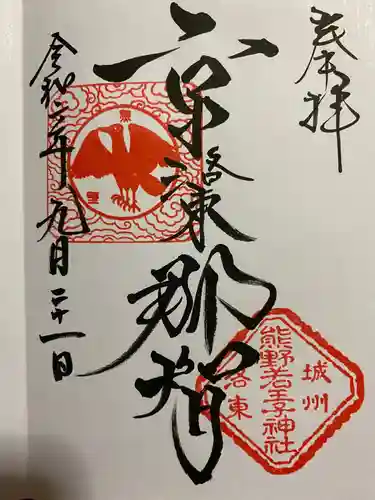 奉拝
京洛東那智
令和
年九月二十一日
城州
熊野若王子神社
洛東